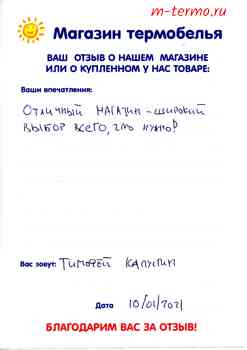 m-termo.ru
Магазин термобелья
ВАШ ОТЗЫВ О НАШЕМ МАГАЗИНЕ
ИЛИ О КУПЛЕННОМ У НАС ТОВАРЕ:
Ваши впечатления:
ОТЛИЧНЫЙ МАГАЗИН - ШИРОКИЙ
ВЫБОР ВСЕГО, ЧТО НУЖНО
Вас зовут: ТИМОФЕЙ
Дата 10/01/2021
БЛАГОДАРИМ ВАС ЗА ОТЗЫВ!